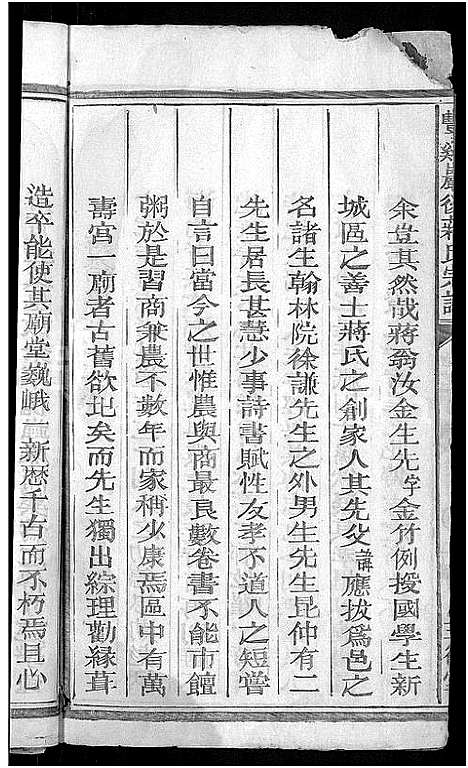 豐谿嚴後蔣氏宗譜
余豈其然哉蔣翁汝金生先字金竹例授國學生新
城區之善士蔣氏之創家人其先父諱應拔為邑之
名諸生翰林院徐謙先生之外男生先生昆仲有二
先生居長甚慧少事詩書賦性友孝不道人之短嘗
自言曰當今之世惟農與商最良數卷書不能市饘
粥於是習商兼農不數年而家稱少康焉區中有萬
壽宮一廟者古舊欲圮矣而先生獨出綜理勸緣葺
造卒能使其廟堂巍峨一新歷千古而不朽焉且心